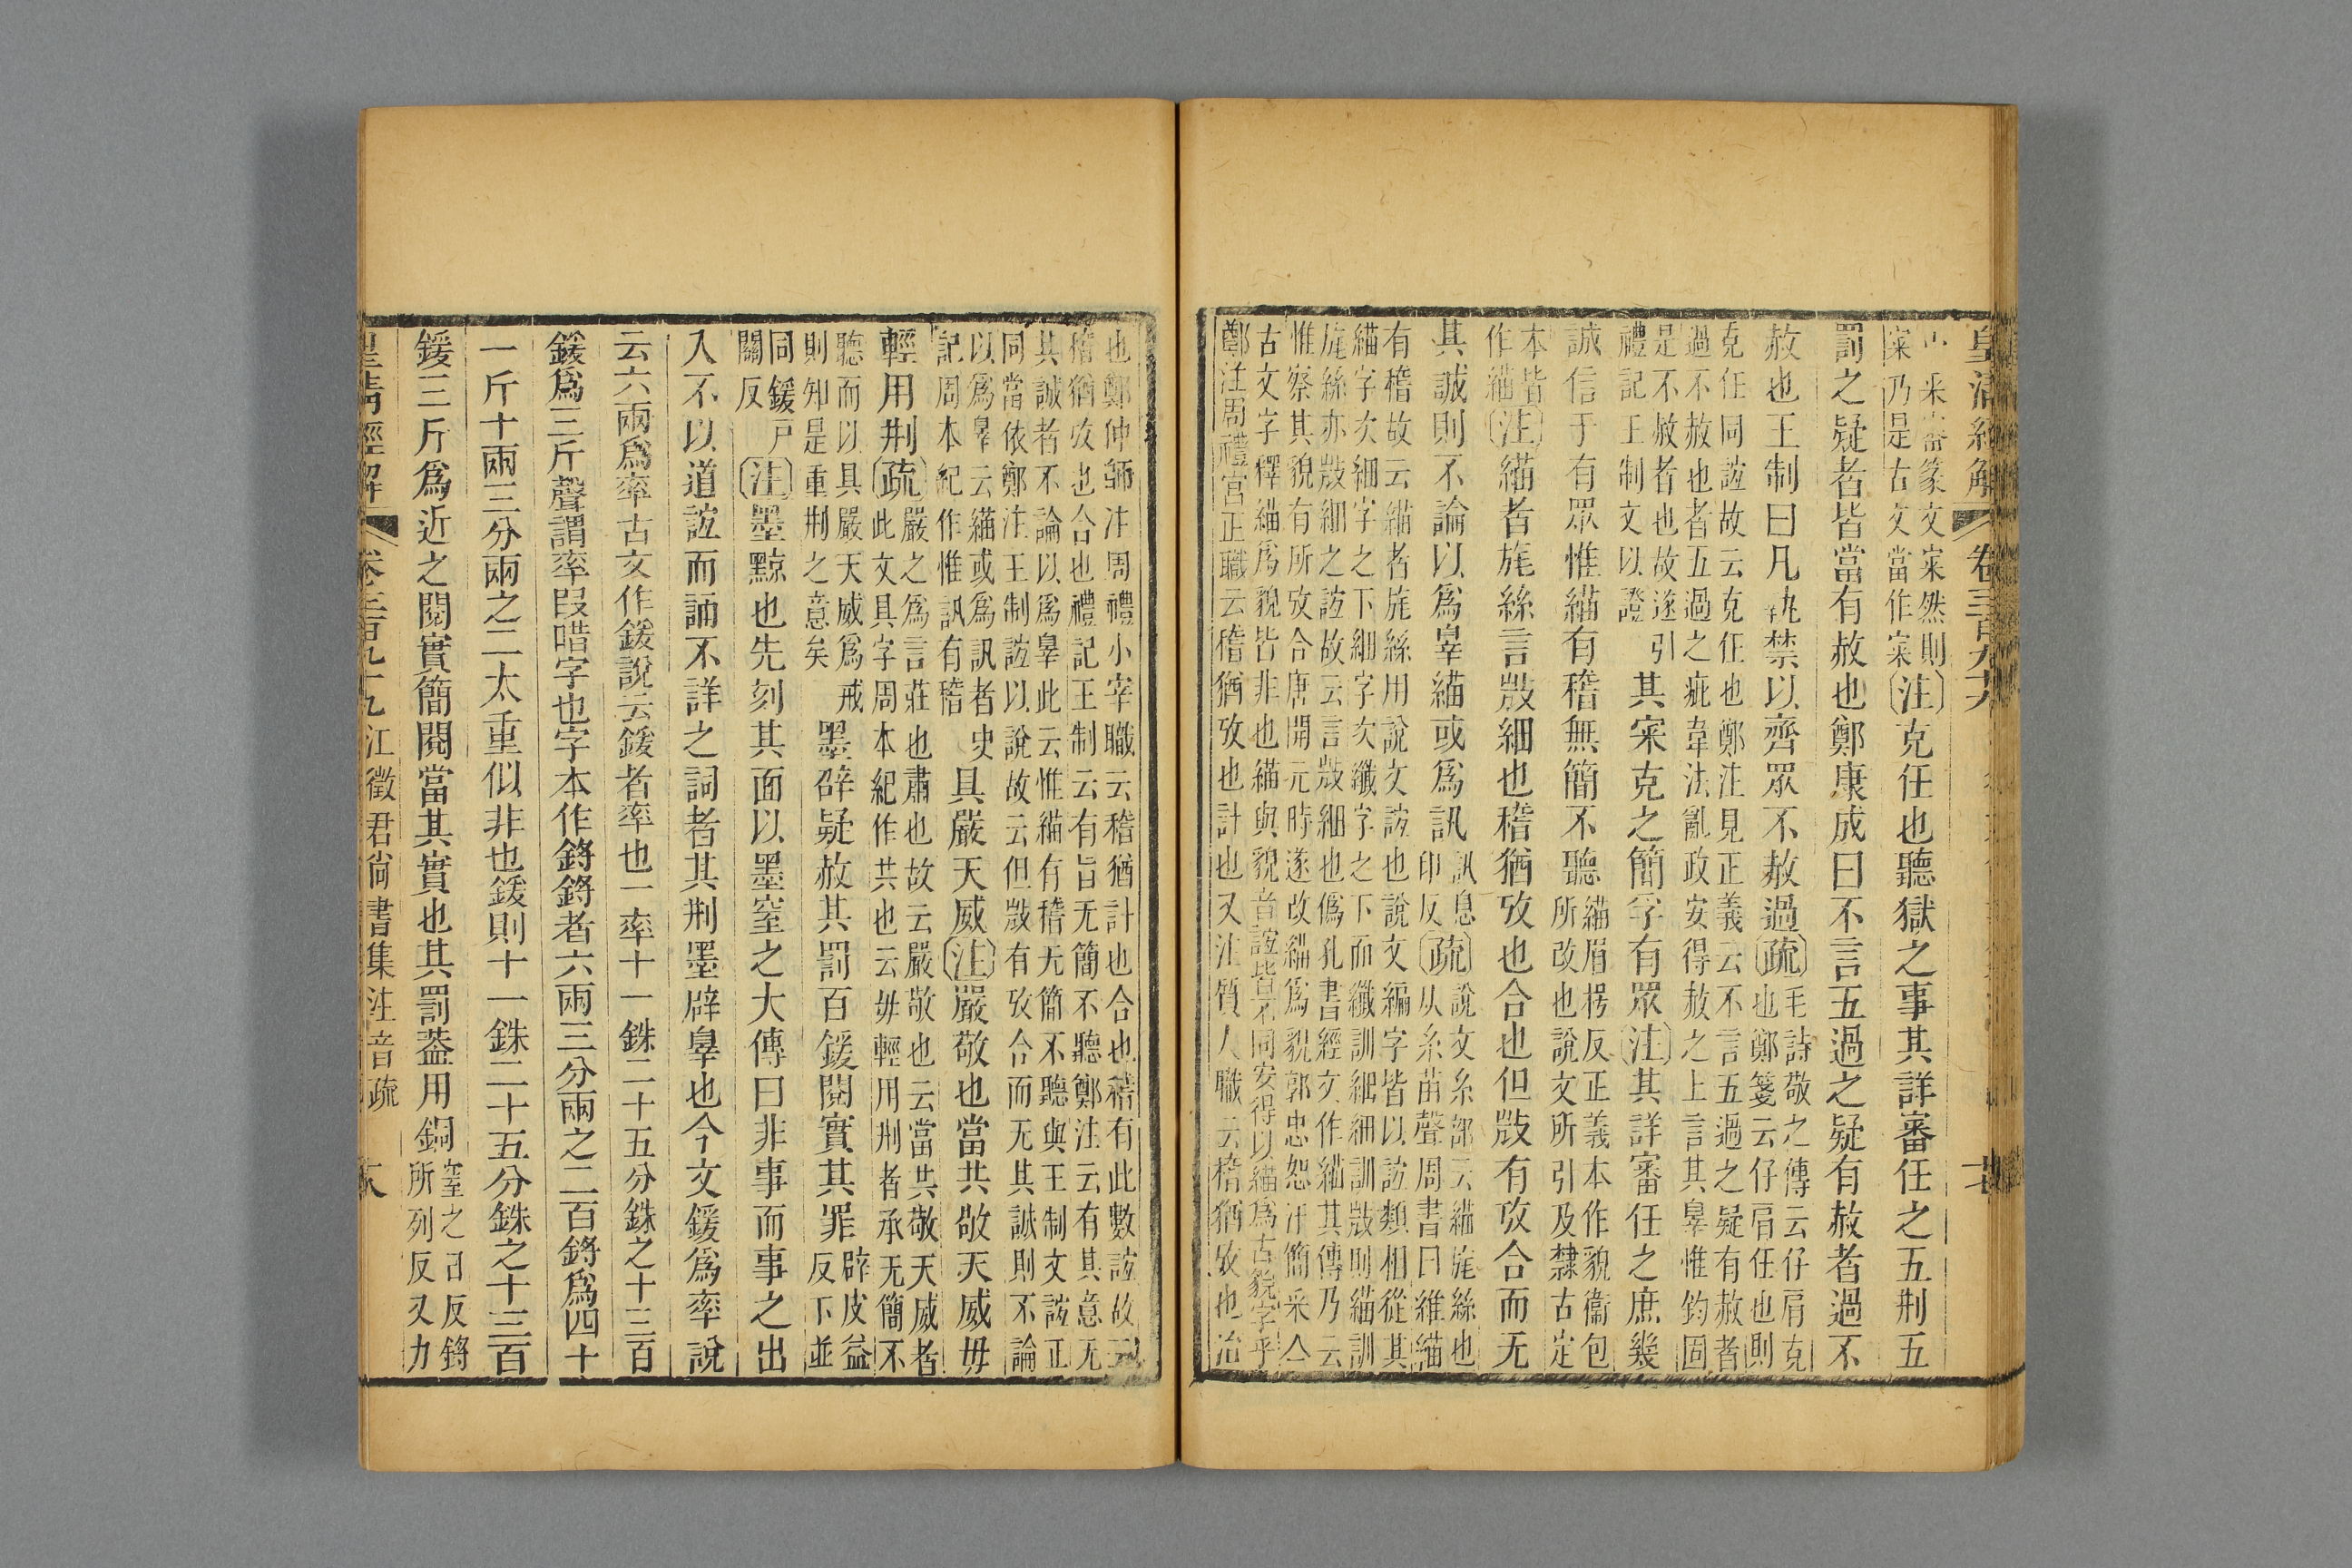 皇清經解 卷三百九十九
采審篆文寀然則
寀乃是古文當作寀
〔注〕克任也聽獄之事其詳審任之五刑五
罰之疑者皆當有赦也鄭康成曰不言五過之疑有赦者過不
赦也王制曰凡執禁以齊眾不赦過
〔疏〕毛詩敬之傳云仔肩克
也鄭箋云仔肩任也則
克任同誼故云克任也鄭注見正義云不言五過之疑有赦者
過不赦也者五過之疵韋法亂政安得赦之上言其辠惟鈞固
是不赦者也故遂引
禮記王制文以證
其寀克之簡孚有眾〔注〕其詳審任之庶幾
誠信于有眾惟緢有稽無簡不聽
緢眉梬反正義本作貌衞包
所改也說文所引及隸古定
本皆
作緢
〔注〕緢者旄絲言㪚細也稽猶攷也合也但㪚有攷合而无
其誠則不論以爲辠緢或爲訊
訊息
印反
〔疏〕說文糸部云緢旄絲也
从糸苗聲周書曰維緢
有稽故云緢者旄絲用說文誼也說文編字皆以誼類相從其
緢字次細字之下細字次纖字之下而纖訓細細訓㪚則緢訓
旄絲亦㪚細之誼故云言㪚細也僞孔書經文作緢其傳乃云
惟察其貌有所攷合唐開元時遂改緢爲貌郭忠恕汗簡采人
古文字釋緢爲貌皆非也緢與貌音誼皆不同安得以緢爲古貌字乎
鄭注周禮宮正職云稽猶攷也計也又注質人職云稽猶攷也治
也鄭仲師注周禮小宰職云稽猶計也合也稽有此數誼故云
稽猶攷也合也禮記王制云有旨无簡不聽鄭注云有其意无
其誠者不論以爲辠此云惟緢有稽无簡不聽與王制文誼正
同當依鄭注王制誼以說故云但㪚有攷合而无其誠則不論
以爲辠云緢或爲訊者史
記周本紀作惟訊有稽
具嚴天威〔注〕嚴敬也當共敬天威毋
輕用刑
〔疏〕嚴之爲言莊也肅也故云嚴敬也云當共敬天威者
此文具字周本紀作共也云毋輕用刑者承无簡不
聽而以具嚴天威爲戒
則知是重刑之意矣
墨辟疑赦其罰百鍰閱實其罪
辟皮益
反下並
同鍰戸
關反
〔注〕墨黥也先刻其面以墨窒之大傳曰非事而事之出
入不以道誼而誦不詳之詞者其刑墨辟辠也今文鍰爲率說
云六兩爲率古文作鍰說云鍰者率也一率十一銖二十五分銖之十三百
鍰爲三斤聲謂率叚唶字也字本作鋝鋝者六兩三分兩之二百鋝爲四十
一斤十兩三分兩之二太重似非也鍰則十一銖二十五分銖之十三百
鍰三斤爲近之閱實簡閱當其實也其罰葢用銅
窒之日反鋝
所列反又力
皇清經解 卷三百九十九 江徵君尚書集注音疏